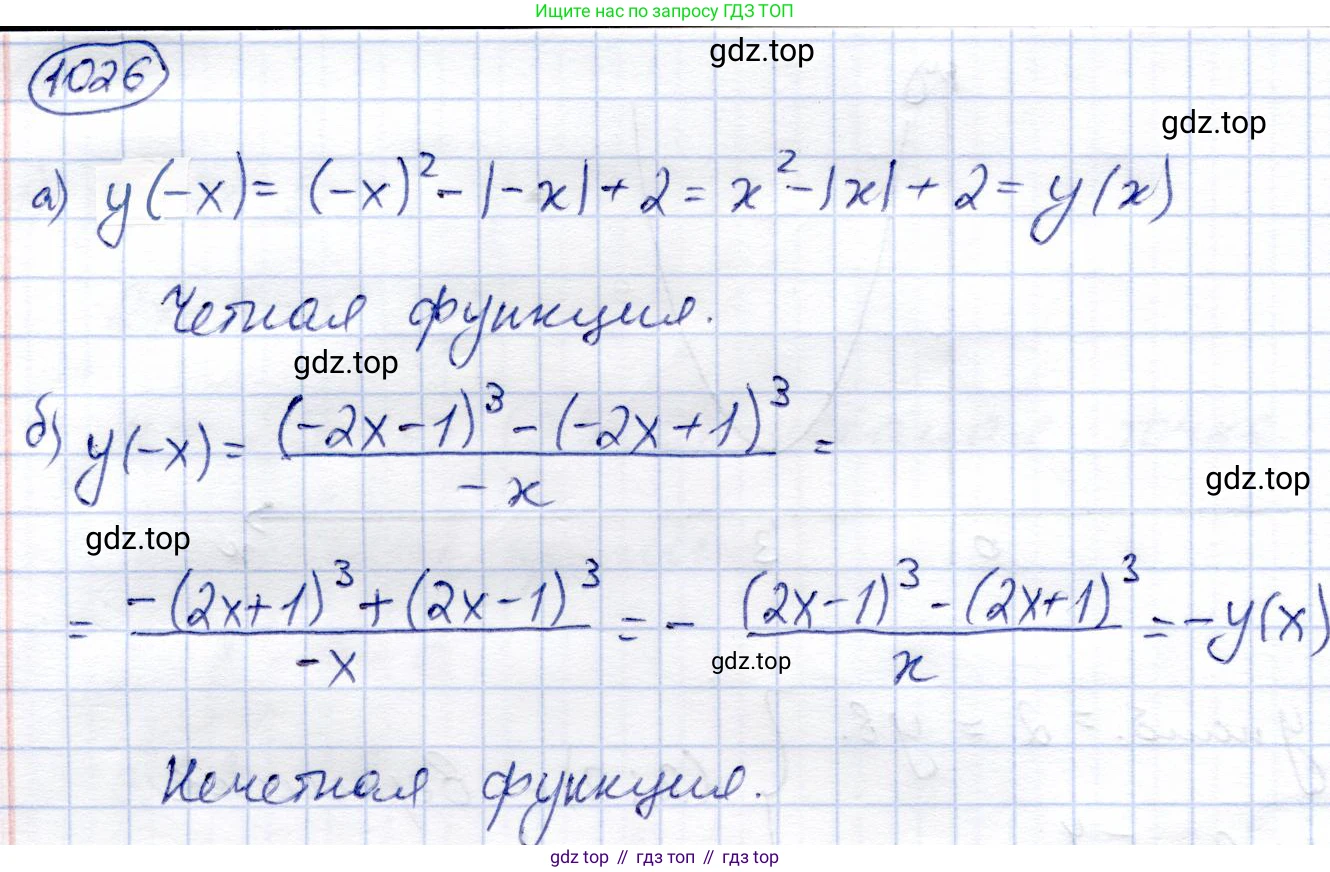 Ищите нас по запросу ГДЗ ТОП
gdz.top
1026
gdz.top
а) y(-x) = (-x)² - |-x| + 2 = x² - |x| + 2 = y(x)
Четная функция.
gdz.top
б) y(-x) = ((-2x-1)³ - (-2x+1)³)/(-x) =
gdz.top
gdz.top
= (-(2x+1)³ + (2x-1)³)/(-x) = - ((2x-1)³ - (2x+1)³)/x = -y(x)
gdz.top
Нечетная функция.
gdz top // гдз топ // гдз top